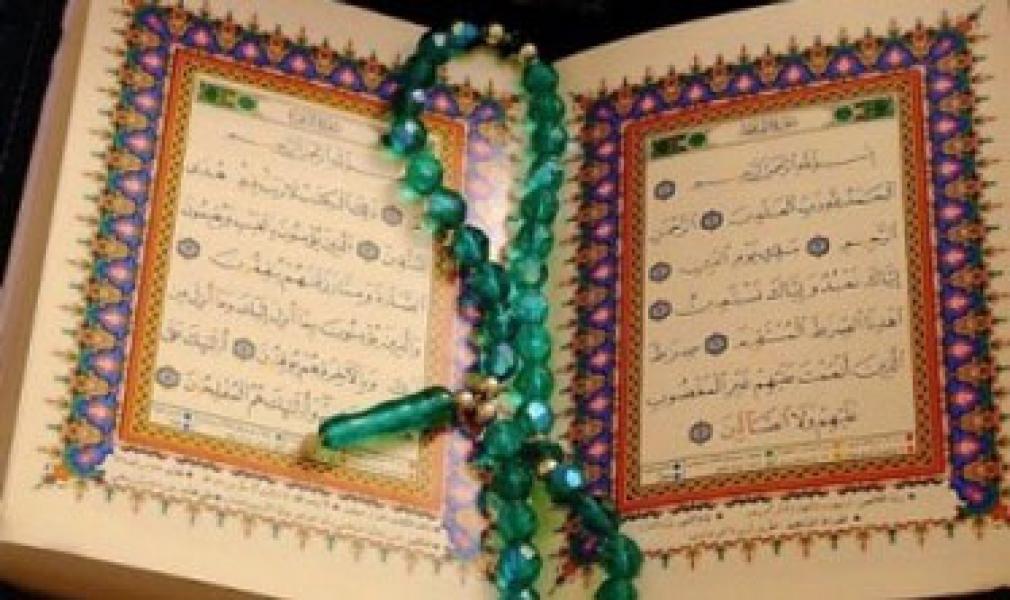 بِسْمِ اللَّهِ الرَّحْمَنِ الرَّحِيمِ
الْحَمْدُ لِلَّهِ رَبِّ الْعَٰلَمِينَ الرَّحْمَٰنِ
الرَّحِيمِ مَٰلِكِ يَوْمِ الدِّينِ
إِيَّاكَ نَعْبُدُ وَإِيَّاكَ نَسْتَعِينُ
اهْدِنَا الصِّرَٰطَ الْمُسْتَقِيمَ صِرَٰطَ
الَّذِينَ أَنْعَمْتَ عَلَيْهِمْ غَيْرِ الْمَغْضُوبِ
عَلَيْهِمْ وَلَا الضَّالِّينَ
بِسْمِ اللَّهِ الرَّحْمَنِ
ذَٰلِكَ الْكِتَٰبُ لَا رَيْبَ فِيهِ هُدًى
لِّلْمُتَّقِينَ الَّذِينَ يُؤْمِنُونَ بِالْغَيْبِ وَيُقِيمُونَ
الصَّلَوٰةَ وَمِمَّا رَزَقْنَٰهُمْ يُنفِقُونَ
وَالَّذِينَ يُؤْمِنُونَ بِمَا أُنزِلَ إِلَيْكَ وَمَا أُنزِلَ مِن
وَبِالْآخِرَةِ هُمْ يُوقِنُونَ أُولَٰئِكَ عَلَىٰ
وَأُولَٰئِكَ هُمُ الْمُفْلِحُونَ